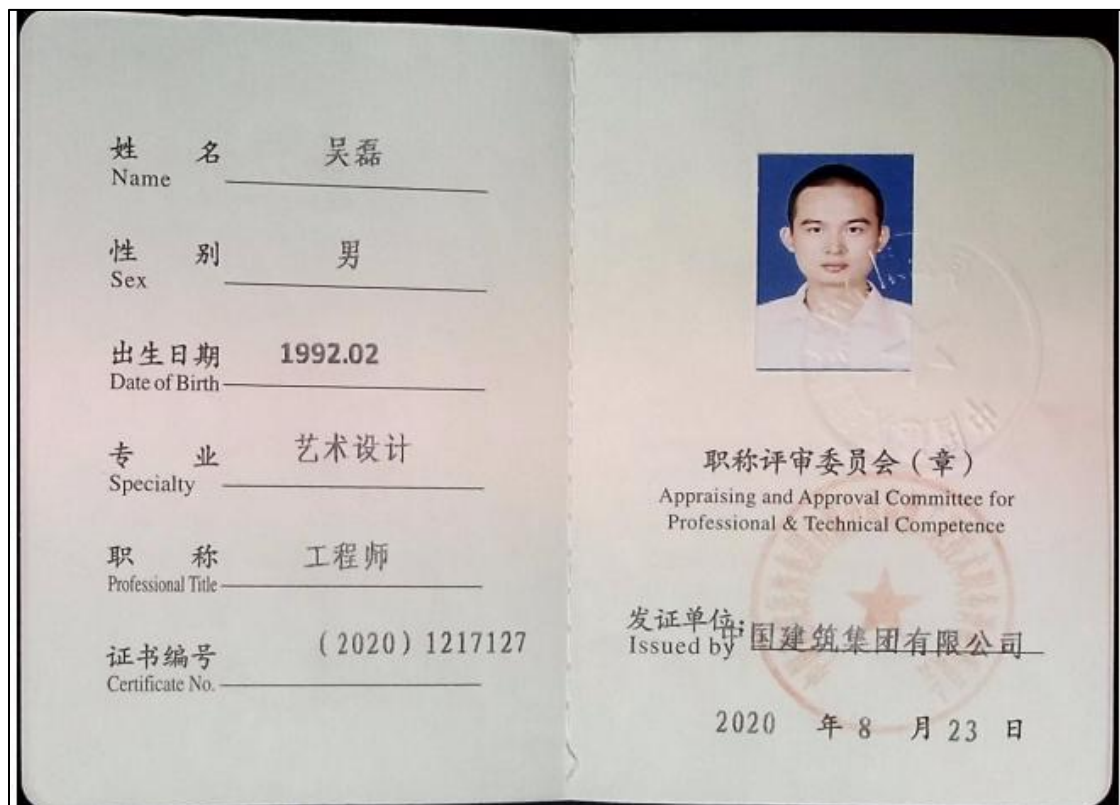 姓 名 吴磊
Name
性 别 男
Sex
出生日期 1992.02
Date of Birth
专 业 艺术设计
Specialty
职 称 工程师
Professional Title
证书编号 (2020) 1217127
Certificate No.
职称评审委员会（章）
Appraising and Approval Committee for
Professional & Technical Competence
发证单位:
Issued by 中国建筑集团有限公司
2020 年 8 月 23 日